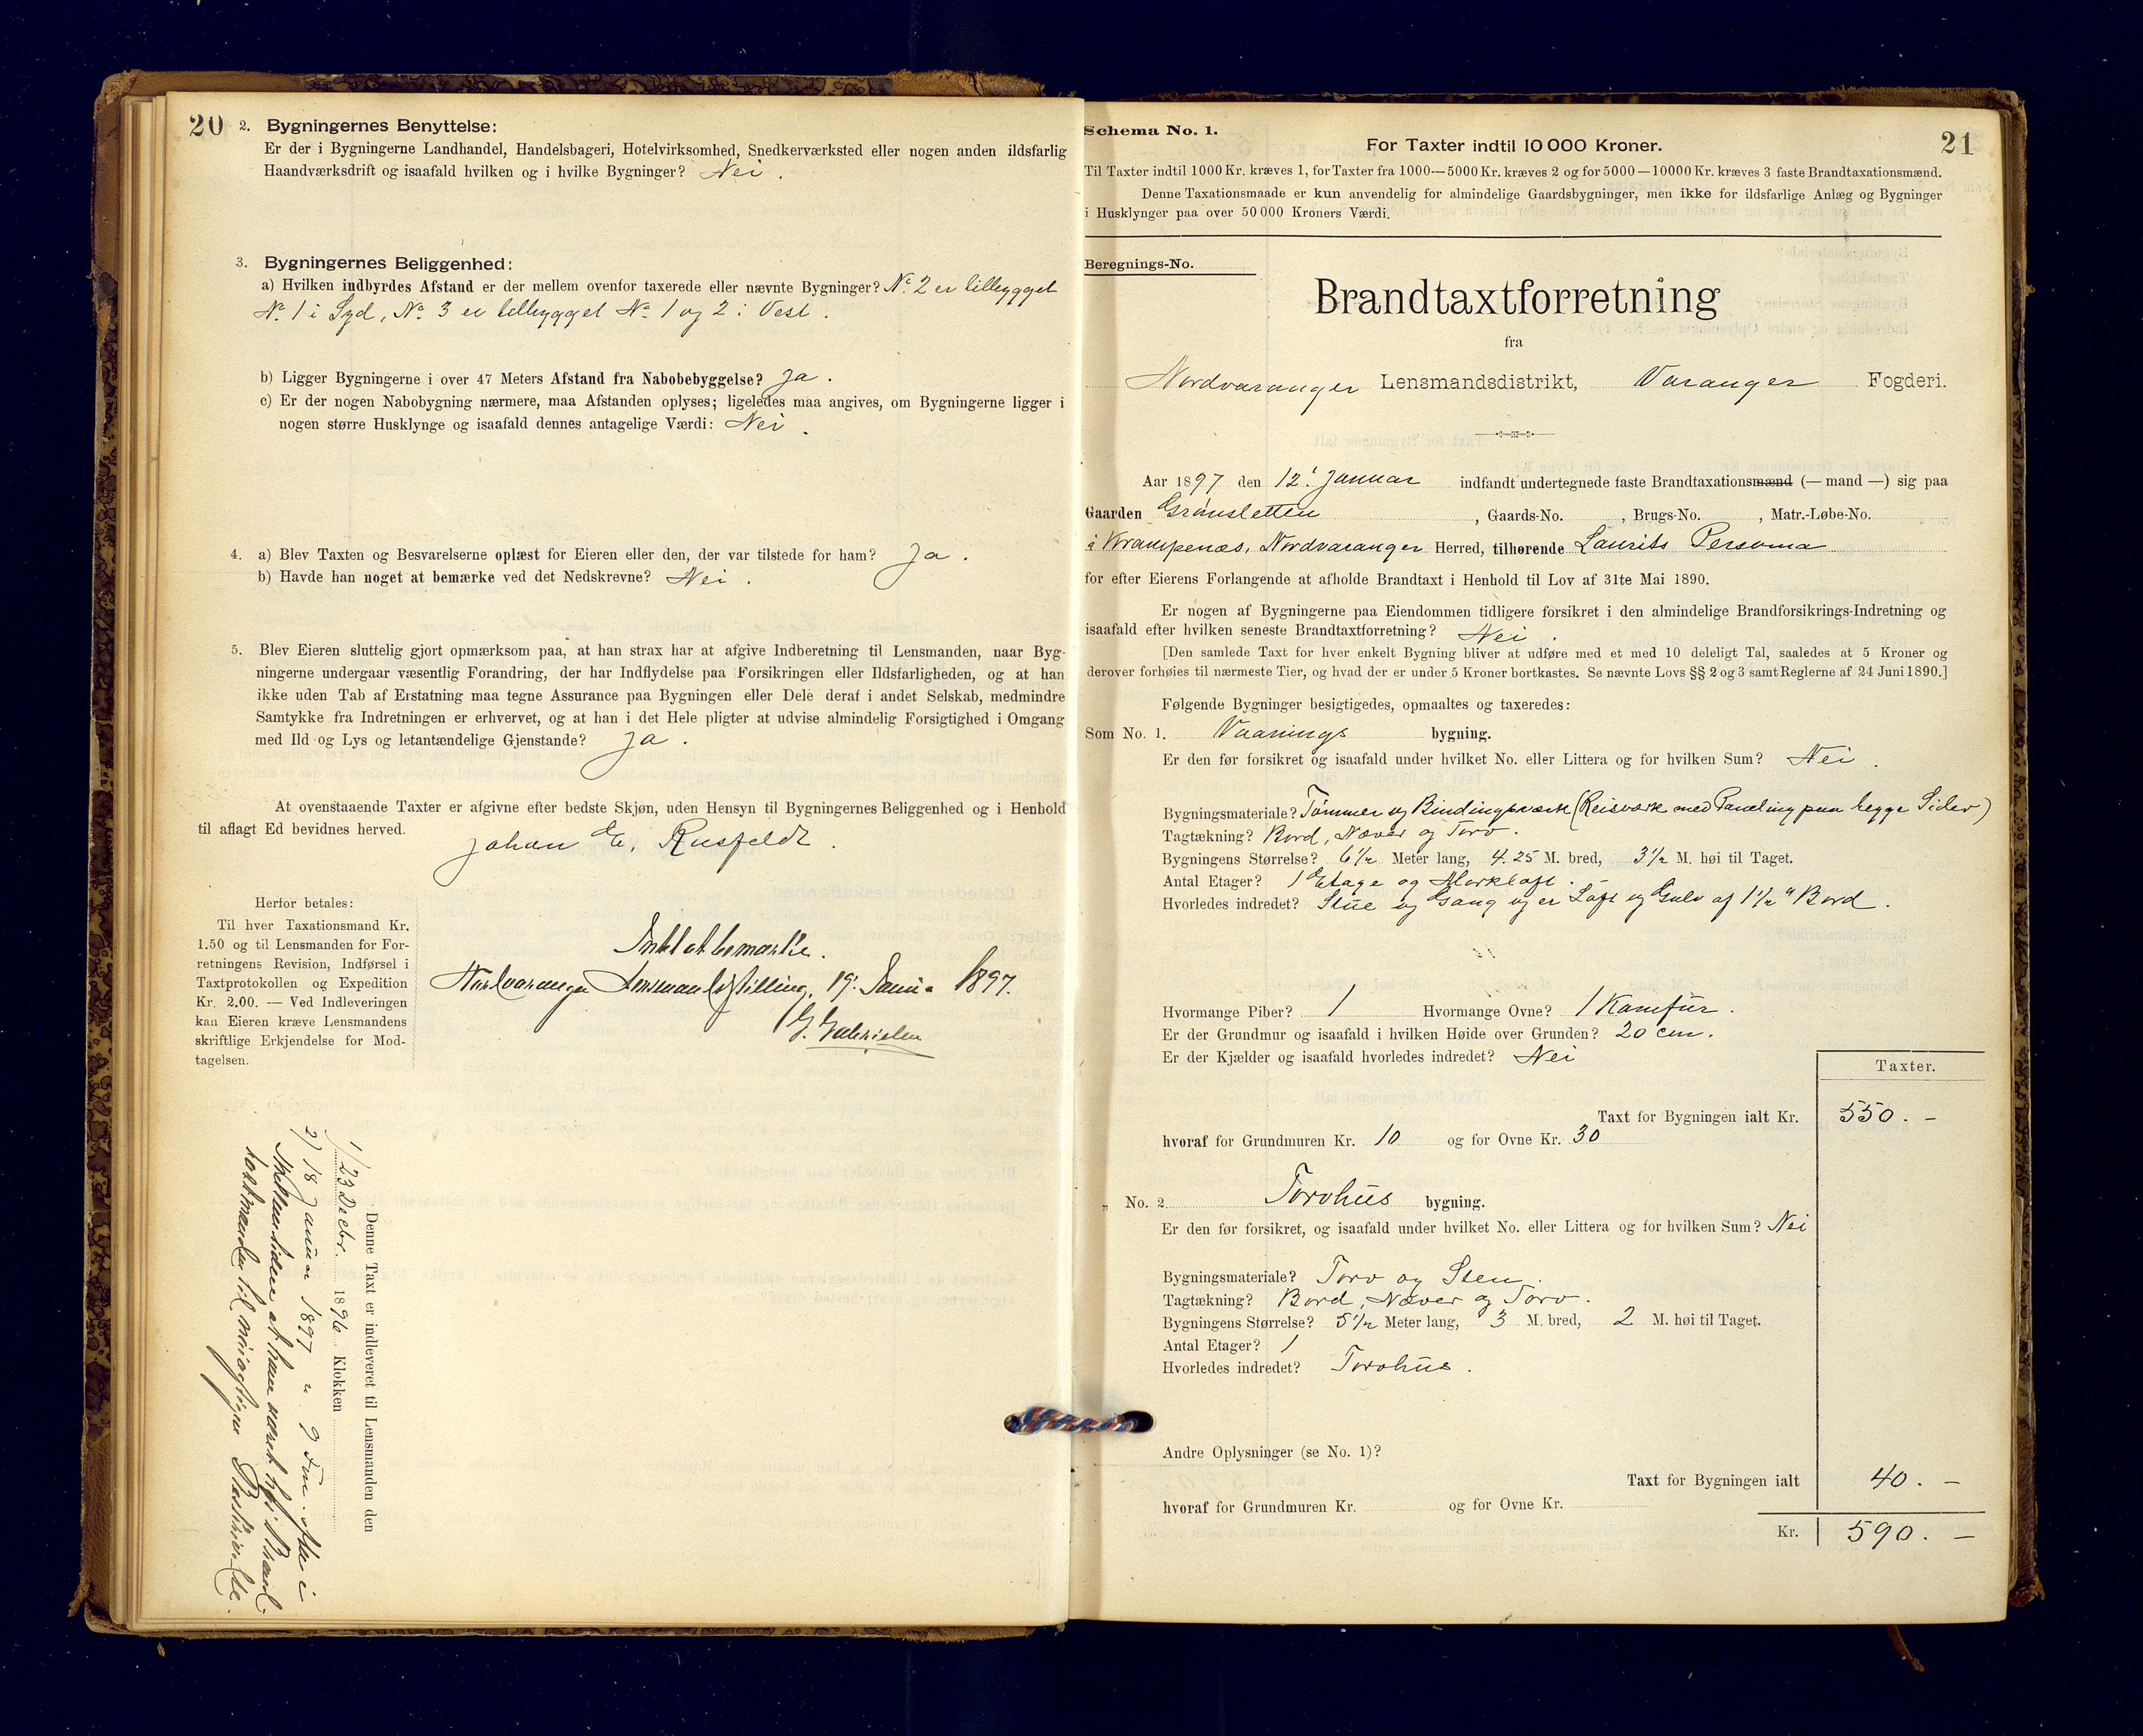 20
2. Bygningernes Benyttelse:
Er der i Bygningerne Landhandel, Handelsbageri, Hotelvirksomhed, Snedkerværksted eller nogen anden ildsfarlig
Haandværksdrift og isaafald hvilken og i hvilke Bygninger? Nei.
3. Bygningernes Beliggenhed:
a) Hvilken indbyrdes Afstand er der mellem ovenfor taxerede eller nævnte Bygninger? No. 2 er tilbygget
No. 1 i Syd, No. 3 er tilbygget No. 1 og 2 i Vest.
b) Ligger Bygningerne i over 47 Meters Afstand fra Nabobebyggelse? Ja.
c) Er der nogen Nabobygning nærmere, maa Afstanden oplyses; ligeledes maa angives, om Bygningerne ligger i
nogen større Husklynge og isaafald dennes antagelige Værdi: Nei.
4. a) Blev Taxten og Besvarelserne oplæst for Eieren eller den, der var tilstede for ham? Ja.
b) Havde han noget at bemærke ved det Nedskrevne? Nei.
5. Blev Eieren sluttelig gjort opmærksom paa, at han strax har at afgive Indberetning til Lensmanden, naar Byg-
ningerne undergaar væsentlig Forandring, der har Indflydelse paa Forsikringen eller Ildsfarligheden, og at han
ikke uden Tab af Erstatning maa tegne Assurance paa Bygningen eller Dele deraf i andet Selskab, medmindre
Samtykke fra Indretningen er erhvervet, og at han i det Hele pligter at udvise almindelig Forsigtighed i Omgang
med Ild og Lys og letantændelige Gjenstande? Ja.
At ovenstaaende Taxter er afgivne efter bedste Skjøn, uden Hensyn til Bygningernes Beliggenhed og i Henhold
til aflagt Ed bevidnes herved.
Johan E. Rusfeldt.
Herfor betales:
Til hver Taxationsmand Kr.
1.50 og til Lensmanden for For-
retningens Revision, Indførsel i
Taxtprotokollen og Expedition
Kr. 2.00. — Ved Indleveringen
kan Eieren kræve Lensmandens
skriftlige Erkjendelse for Mod-
tagelsen.
Intet at bemærke.
Nordvaranger Lensmandsbestilling, 19. Januar 1897.
G. Gabrielsen
Denne Taxt er indleveret til Lensmanden den
1) 23 Decbr. 1896 Klokken
2) 18 Januar 1897 " 9 Fm.
21
Schema No. 1.
For Taxter indtil 10000 Kroner.
Til Taxter indtil 1000 Kr. kræves 1, for Taxter fra 1000—5000 Kr. kræves 2 og for 5000—10000 Kr. kræves 3 faste Brandtaxationsmænd.
Denne Taxationsmaade er kun anvendelig for almindelige Gaardsbygninger, men ikke for ildsfarlige Anlæg og Bygninger
i Husklynger paa over 50000 Kroners Værdi.
Beregnings-No.
Brandtaxtforretning
fra
Nordvaranger Lensmandsdistrikt, Varanger Fogderi.
Aar 1897 den 12. Januar indfandt undertegnede faste Brandtaxationsmænd (— mand —) sig paa
Gaarden Grønsletten, Gaards-No. , Brugs-No. , Matr.-Løbe-No.
i Krampenæs, Nordvaranger Herred, tilhørende Laurits Persoma
for efter Eierens Forlangende at afholde Brandtaxt i Henhold til Lov af 31te Mai 1890.
Er nogen af Bygningerne paa Eiendommen tidligere forsikret i den almindelige Brandforsikrings-Indretning og
isaafald efter hvilken seneste Brandtaxtforretning? Nei.
[Den samlede Taxt for hver enkelt Bygning bliver at udføre med et med 10 deleligt Tal, saaledes at 5 Kroner og
derover forhøies til nærmeste Tier, og hvad der er under 5 Kroner bortkastes. Se nævnte Lovs §§ 2 og 3 samt Reglerne af 24 Juni 1890.]
Følgende Bygninger besigtigedes, opmaaltes og taxeredes:
Som No. 1. Vaanings bygning.
Er den før forsikret og isaafald under hvilket No. eller Littera og for hvilken Sum? Nei.
Bygningsmateriale? Tømmer og Bindingsværk (Reisværk med Paneling paa begge Sider)
Tagtækning? Bord, Næver og Torv.
Bygningens Størrelse? 6 1/2 Meter lang, 4.25 M. bred, 3 1/2 M. høi til Taget.
Antal Etager? 1 Etage og Mørkloft.
Hvorledes indredet? Stue og Gang og er Loft og Gulv af 1 1/2" Bord.
Hvormange Piber? 1 Hvormange Ovne? 1 Komfur.
Er der Grundmur og isaafald i hvilken Høide over Grunden? 20 cm.
Er der Kjælder og isaafald hvorledes indredet? Nei
Taxter.
Taxt for Bygningen ialt Kr. 550. —
hvoraf for Grundmuren Kr. 10 og for Ovne Kr. 30
„ No. 2. Torvhus bygning.
Er den før forsikret, og isaafald under hvilket No. eller Littera og for hvilken Sum? Nei
Bygningsmateriale? Torv og Sten.
Tagtækning? Bord, Næver og Torv.
Bygningens Størrelse? 5 1/2 Meter lang, 3 M. bred, 2 M. høi til Taget.
Antal Etager? 1
Hvorledes indredet? Torvhus.
Andre Oplysninger (se No. 1)?
Taxt for Bygningen ialt 40. —
hvoraf for Grundmuren Kr. og for Ovne Kr.
Kr. 590. —